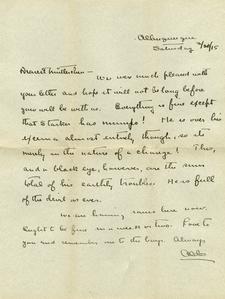 Albuquerque
Saturday 4/24/15
Dearest Mutterchen —
We were much pleased with
your letter and hope it will not be long before
you will be with us. Everything is fine except
that Starker has mumps! He is over his
eczema almost entirely though, so its
merely in the nature of a change! This,
and a black eye, however, are the sum
total of his earthly troubles. He is full
of the devil as ever.
We are having some rain now.
Ought to be fine in a week or two. Love to
you and remember me to the boys. Always,